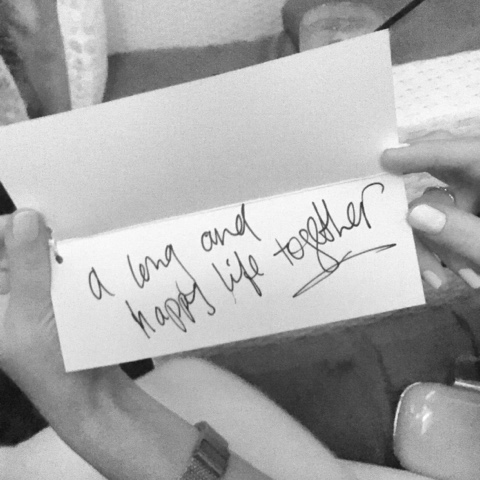 a long and
happy life together